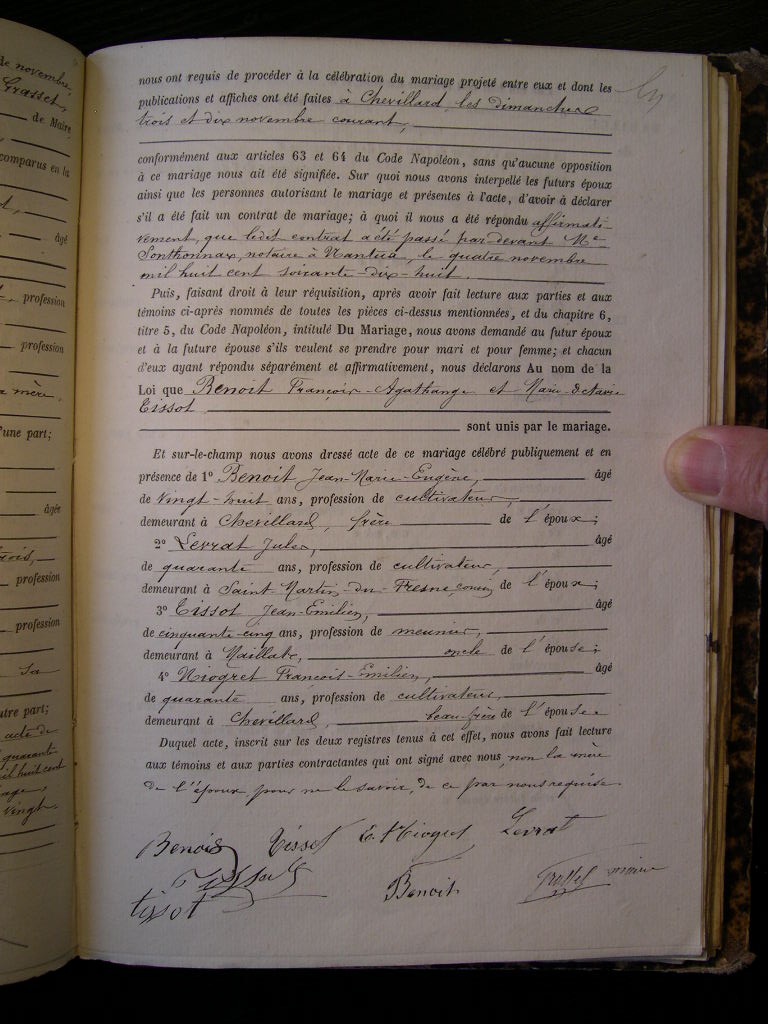 de novembre
Grasset,
de Maire
comparus en la
âgé
profession
profession
mère,
d'une part;
âgée
profession
profession
Sa
autre part;
acte de
quarante
mil huit cent
vingt.
nous ont requis de procéder à la célébration du mariage projeté entre eux et dont les
publications et affiches ont été faites à Chevillard, les dimanches
trois et dix novembre courant,
conformément aux articles 63 et 64 du Code Napoléon, sans qu'aucune opposition
à ce mariage nous ait été signifiée. Sur quoi nous avons interpellé les futurs époux
ainsi que les personnes autorisant le mariage et présentes à l'acte, d'avoir à déclarer
s'il a été fait un contrat de mariage; à quoi il nous a été répondu affirmati-
vement, que ledit contrat a été passé par-devant Me
Sonthonnax, notaire à Nantua, le quatre novembre
mil huit cent soixante-dix-huit.
Puis, faisant droit à leur réquisition, après avoir fait lecture aux parties et aux
témoins ci-après nommés de toutes les pièces ci-dessus mentionnées, et du chapitre 6,
titre 5, du Code Napoléon, intitulé Du Mariage, nous avons demandé au futur époux
et à la future épouse s'ils veulent se prendre pour mari et pour femme; et chacun
d'eux ayant répondu séparément et affirmativement, nous déclarons Au nom de la
Loi que Benoit François-Agathange et Marie-Octavie
Tissot
sont unis par le mariage.
Et sur-le-champ nous avons dressé acte de ce mariage célébré publiquement et en
présence de 1º Benoit Jean-Marie-Eugène, âgé
de vingt-huit ans, profession de cultivateur,
demeurant à Chevillard, frère de l'époux;
2º Levrat Jules, âgé
de quarante ans, profession de cultivateur,
demeurant à Saint-Martin-du-Fresne, cousin de l'époux;
3º Tissot Jean-Emilien, âgé
de cinquante-cinq ans, profession de meunier,
demeurant à Maillat, oncle de l'épouse;
4º Niogret François-Emilien, âgé
de quarante ans, profession de cultivateur,
demeurant à Chevillard, beau-frère de l'épouse.
Duquel acte, inscrit sur les deux registres tenus à cet effet, nous avons fait lecture
aux témoins et aux parties contractantes qui ont signé avec nous, non la mère
de l'époux, pour ne le savoir, de ce par nous requise.
Benoit Tissot E. Niogret Levrat
Tissot Benoit Grasset maire
tissot